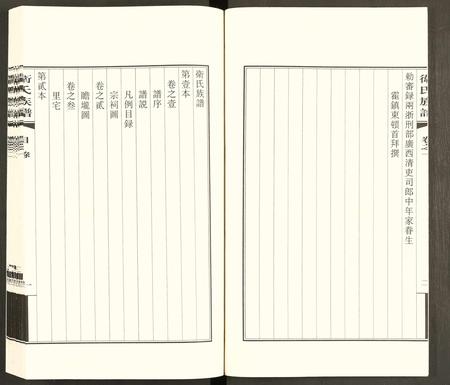 勅審録兩浙刑部廣西清吏司郎中年家眷生
霍鎮東頓首拜撰
衛氏族譜
卷之一
二
衛氏族譜
第壹本
卷之壹
譜序
譜説
凡例目録
宗祠圖
卷之貳
瞻壠圖
卷之叁
里宅
第貳本
衛氏族譜
目录
一